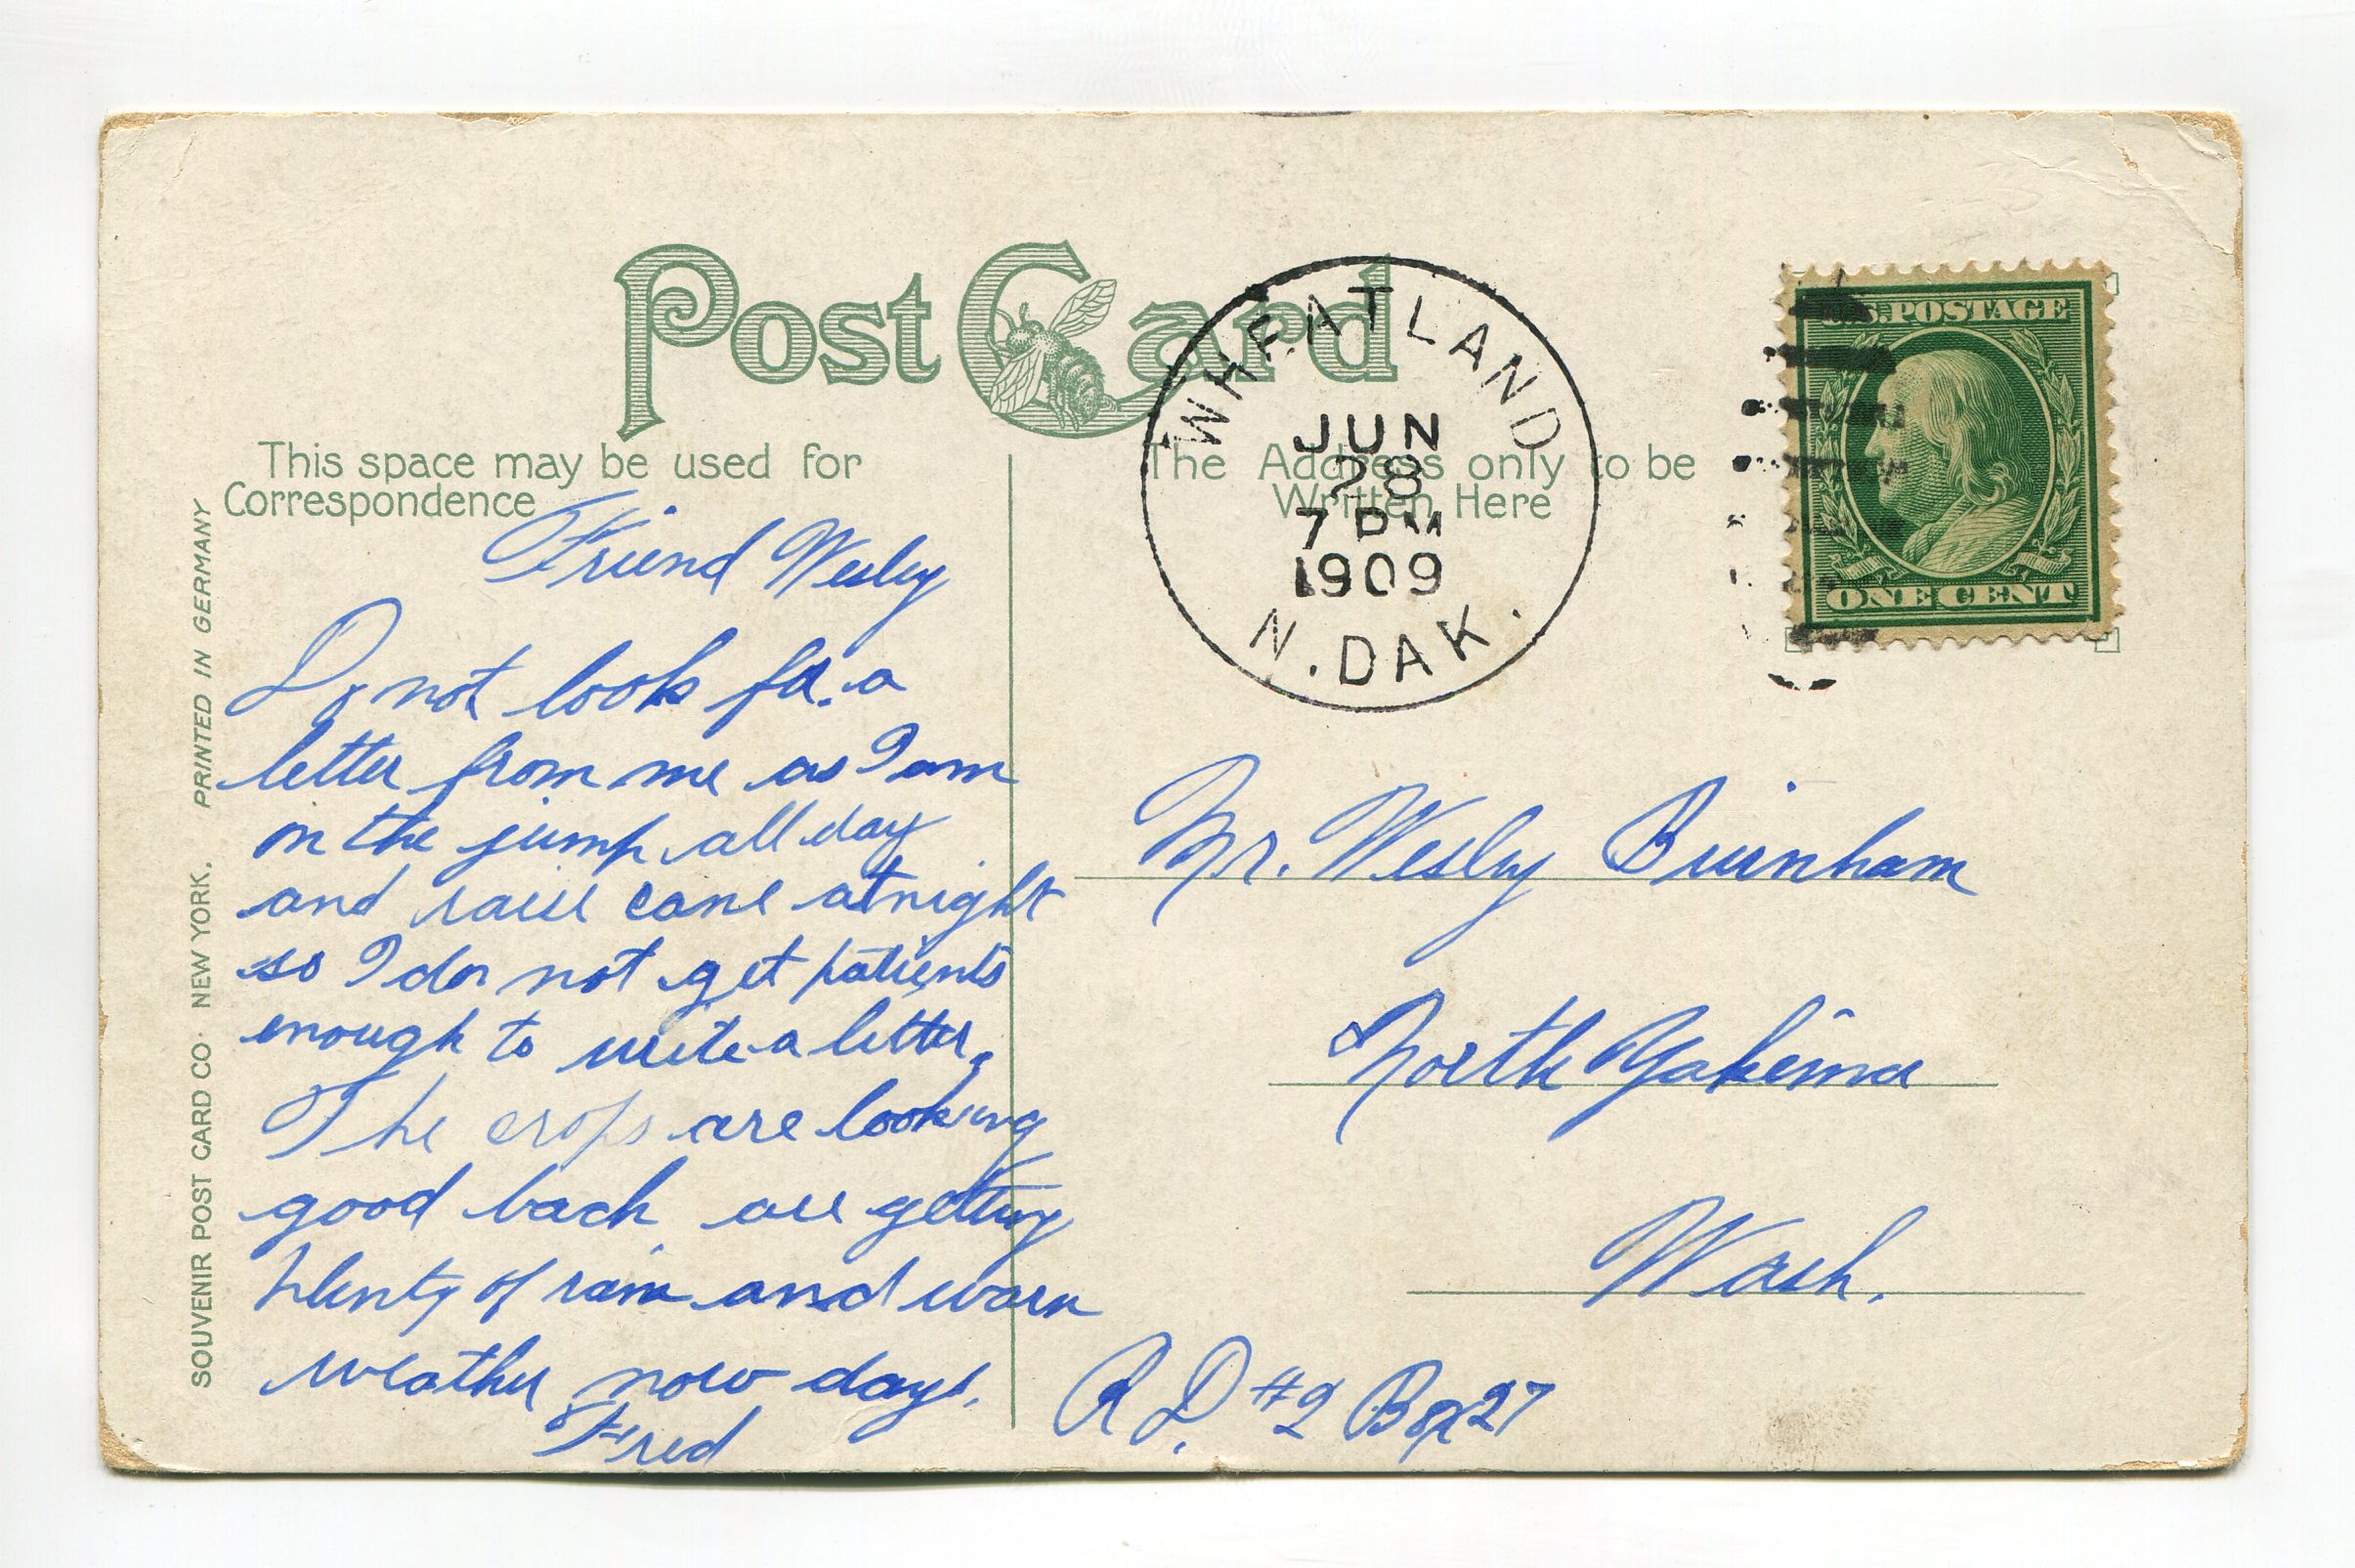 Post Card
This space may be used for
Correspondence
The Address only to be
Written Here
WHEATLAND
JUN
28
7 PM
1909
N. DAK.
U.S. POSTAGE
ONE CENT
SOUVENIR POST CARD CO. NEW YORK. PRINTED IN GERMANY
Friend Wesley
Do not look for a
letter from me as I am
on the jump all day
and raise cane at night
so I do not get patients
enough to write a letter.
The crops are looking
good back are getting
plenty of rain and warm
weather now days.
Fred
Mr. Wesley Burnham
North Yakima
Wash.
R D. #2 Box 27